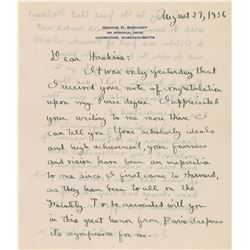 GEORGE D. BIRKHOFF
CAMBRIDGE, MASSACHUSETTS
August 27, 1936
Dear Haskins:
It was only yesterday that
I received your note of congratulation
upon my Paris degree. I appreciated
your writing to me more than I
can tell you. Your scholarly ideals
and high achievement, your fairness
and vision have been an inspiration
to me since I first came to Harvard,
as they have been to all on the
Faculty. To be associated with you
in this great honor from Paris deepens
its significance for me.